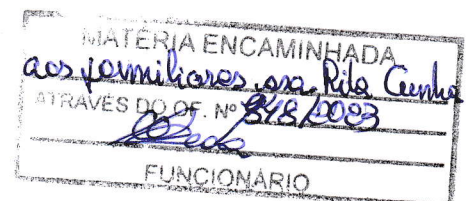 MATÉRIA ENCAMINHADA
aos familiares, sra. Rita Cunha
ATRAVÉS DO OF. Nº 848/2023
FUNCIONÁRIO